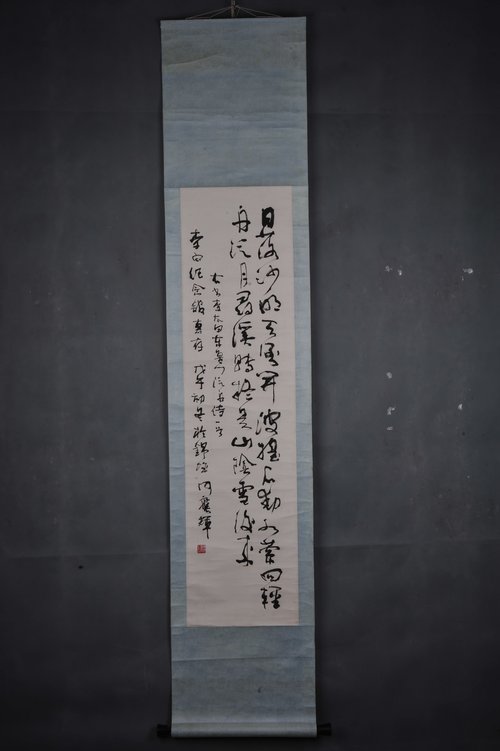 日落沙明天倒开波摇石动水萦回輕
舟泛月尋溪轉疑是山陰雪後來
右書李太白東魯門泛舟詩一首
李白纪念館惠存 戊午初冬於錦城 何